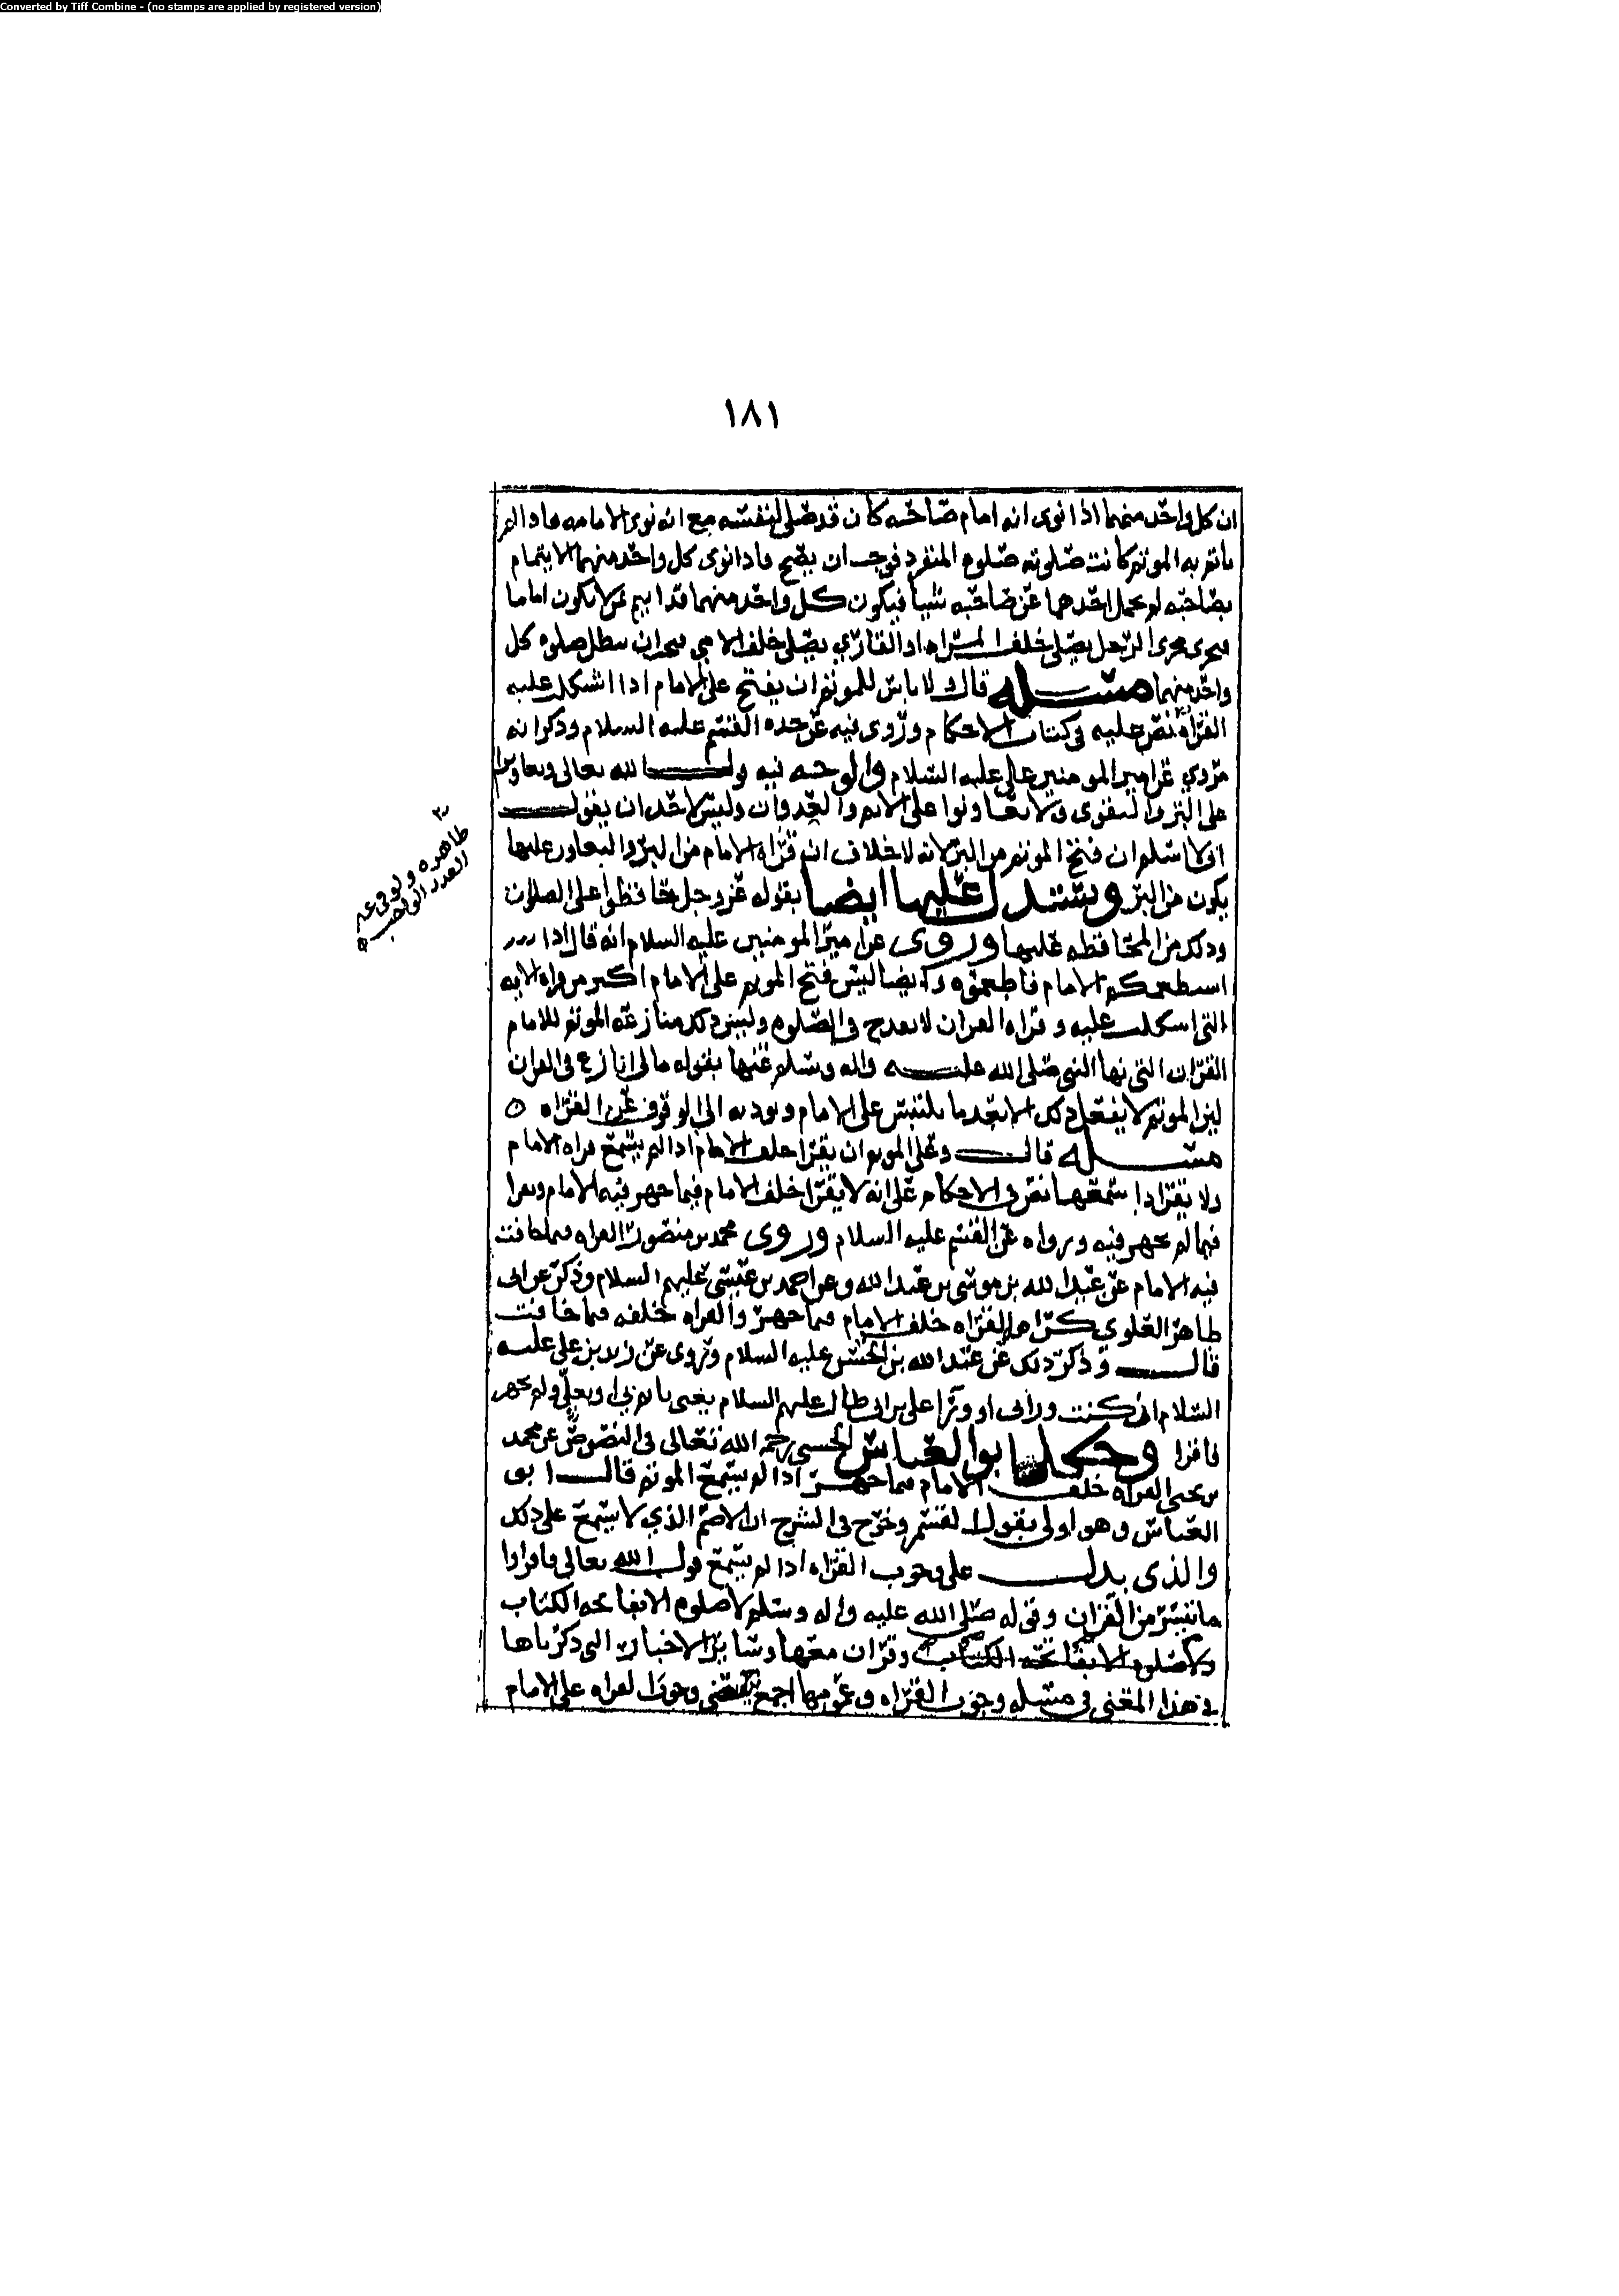 Converted by Tiff Combine - (no stamps are applied by registered version)
١٨١
ان كل واحد منهما اذا نوى انه امام صاحبه كان قد صلى لنفسه مع انه نوى الامامه
ياتم به الموتم كانت صلوته صلوه المنفرد فوجب ان يصح واذا نوى كل واحد منهما الايتمام
بصاحبه لم يحمل احدهما عن صاحبه شيا فيكون كل واحد منهما قد ايتم بمن لا يكون اماما
فيجرى مجرى الرجل يصلى خلف المراه او القاري يصلى خلف الامي فيجب ان سطل صلوه كل
واحد منهما مسئله قال ولا باس للموتم ان يفتح على الامام اذا اشكلت عليه
القراه نص عليه في كتاب الاحكام وروى فيه عن جده القسم عليه السلام وذكر انه
مروي عن امير المومنين علي عليه السلام والوجه فيه قول الله تعالى وتعاونوا
على البر والتقوى ولا تعاونوا على الاثم والعدوان وليس لاحد ان يقول
انى لا اسلم ان فتح الموتم من البر لانه لا خلاف ان قراه الامام من البر والتعاون عليها
يكون من البر ويستدل عليها ايضا بقوله عز وجل حافظوا على الصلوات
وذلك من المحافظه عليها وروى عن امير المومنين عليه السلام انه قال اذا
استطعمكم الامام فاطعموه وايضا ليس فتح الموتم على الامام اكثر من قراه الايه
التى اشكلت عليه و قراه القران لا تقدح في الصلوه وليس ذلك منازعه الموتم للامام
القران التى نها النبى صلى الله عليه واله وسلم عنها بقوله مالى انازع في القران
لان الموتم لا يفعل ذلك الا بعد ما يلتبس على الامام ويوديه الى الوقوف عن القراه ٥
مسئله قال وعلى الموتم ان يقرا خلف الامام اذا لم يستمع قراه الامام
ولا يقرا اذا سمعها نص في الاحكام على انه لا يقرا خلف الامام فيما جهر فيه الامام ويقرا
فيما لم يجهر فيه ورواه عن القسم عليه السلام وروى محمد بن منصور القراه فيما خافت
فيه الامام عن عبد الله بن موسى بن عبد الله وعن احمد بن عيسى عليهم السلام وذكر عن ابى
طاهر العلوي كراهه القراه خلف الامام فيما جهر والقراه خلفه فيما خافت
قال وذكر ذلك عن عبد الله بن الحسن عليه السلام وروى عن زيد بن على عليه
السلام ان كنت ورائى او ورا على بن ابى طالب عليهم السلام يعنى ياتم بى او بعلي ولم يجهر
فاقرا وحكى ابو العباس الحسنى رحمه الله تعالى في النصوص عن محمد
بن يحيى القراه خلف الامام فيما جهر اذا لم يستمع الموتم قال ابو
العباس وهو اولى بقول القسم وخرج في الشرح ان الاصم الذي لا يستمع على ذلك
والذى يدل على وجوب القراه اذا لم يستمع قول الله تعالى فاقراوا
ما تيسر من القران وقوله صلى الله عليه واله وسلم لا صلوه الا بفاتحه الكتاب
ولا صلوه الا بفاتحه الكتاب وقران معها وسائر الاخبار التى ذكرناها
في هذا المعنى في مسئله وجوب القراه وعمومها اجمع يقتضى وجوب القراه على الامام
طاهره
العدد الواجب